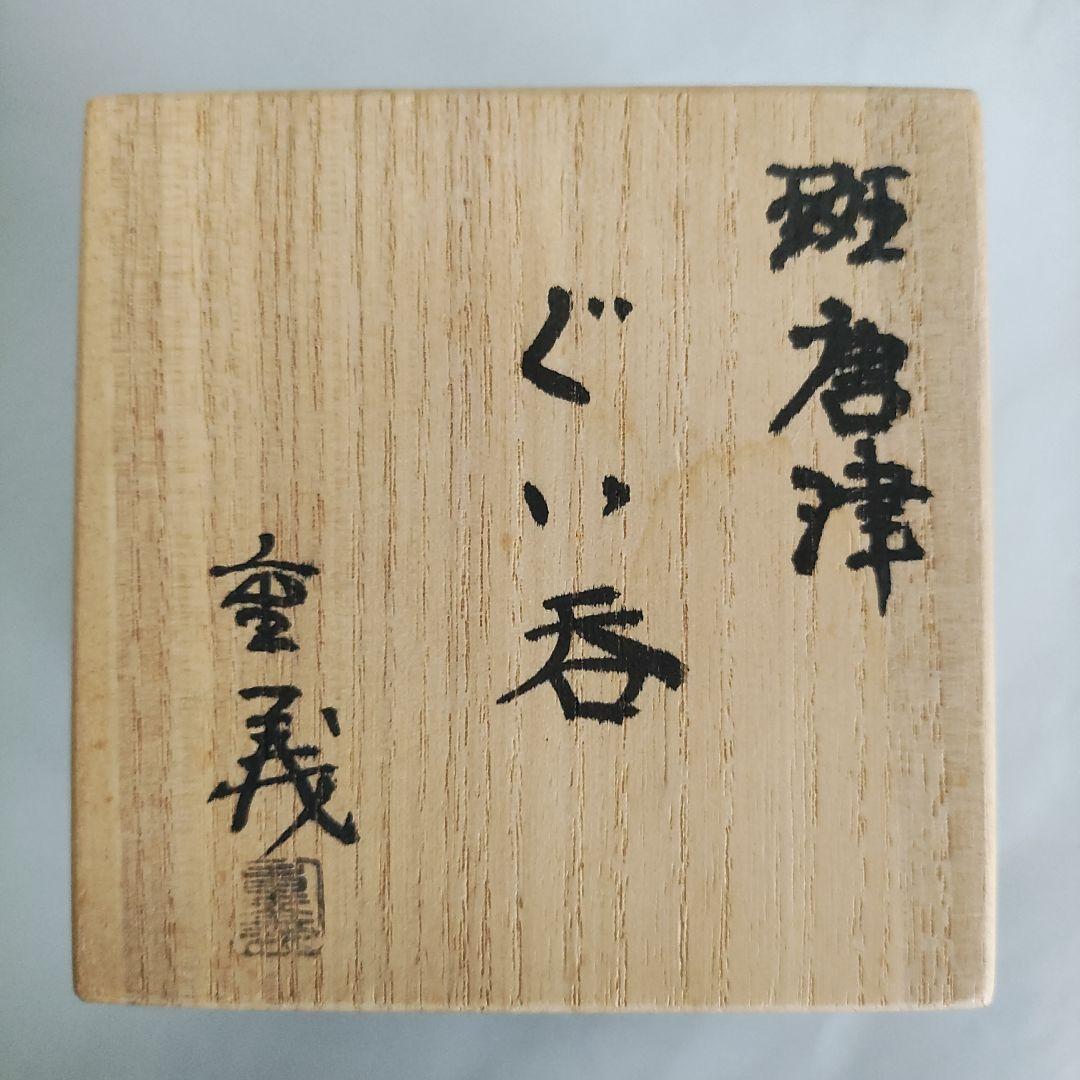 斑唐津
ぐい呑
重義